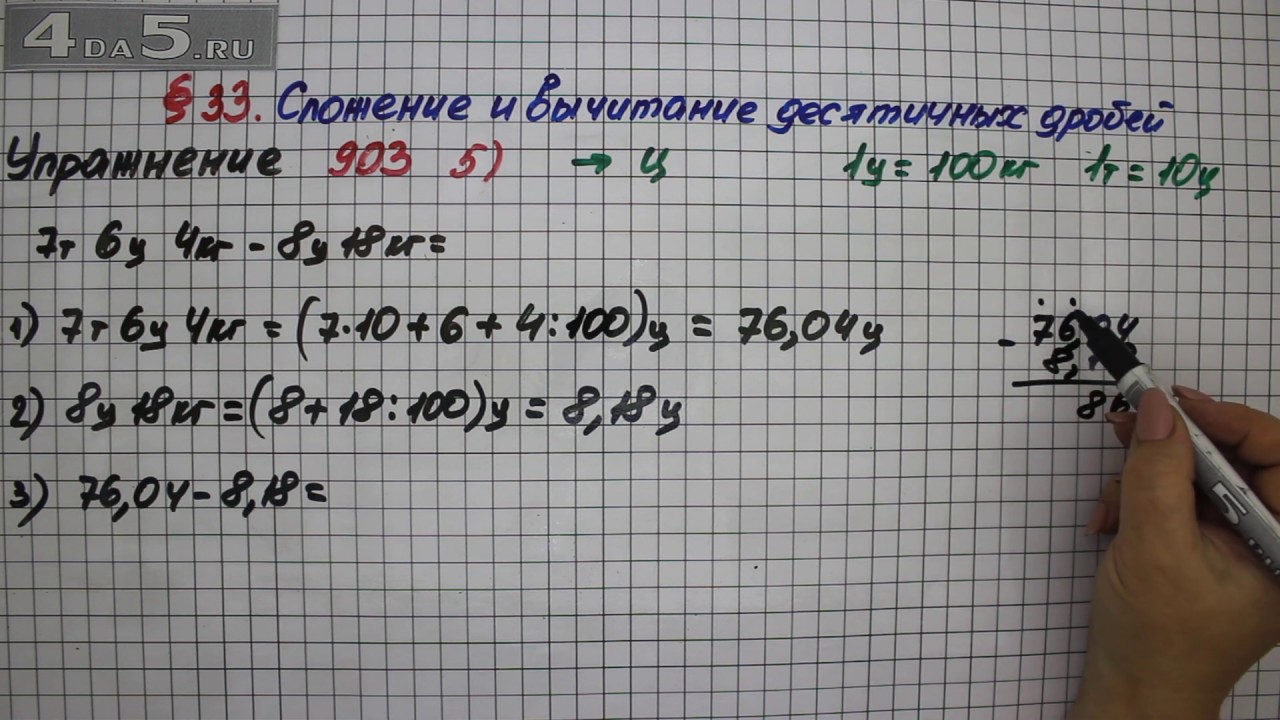 4DA5.RU
§ 33. Сложение и вычитание десятичных дробей
Упражнение 903 5) → ц 1ц = 100кг 1т = 10ц
7т 6ц 4кг - 8ц 18кг =
1) 7т 6ц 4кг = (7·10 + 6 + 4:100)ц = 76,04ц
2) 8ц 18кг = (8 + 18:100)ц = 8,18ц
3) 76,04 - 8,18 =